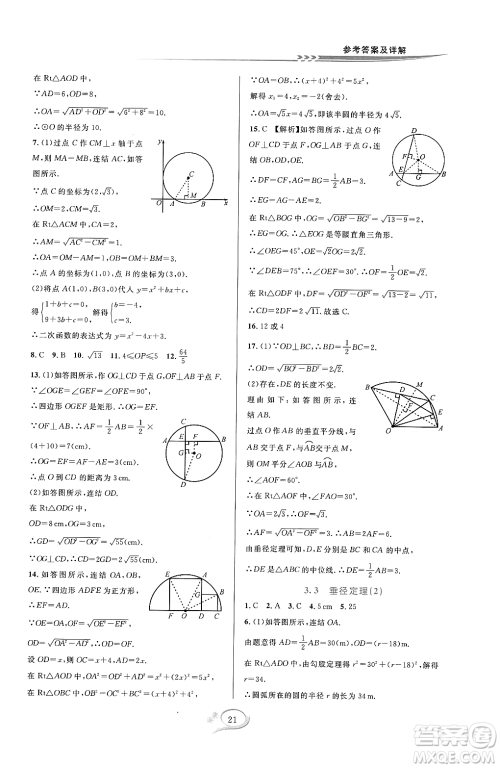 参考答案及详解
在 Rt△AOD 中，
∵AD=6，OD=8，
∴OA=√(AD²+OD²)=√(6²+8²)=10.
∴⊙O 的半径为 10.
7.(1)过点 C 作 CM⊥x 轴于点
M，则 MA=MB，连结 AC，如答
图所示.
∵点 C 的坐标为(2,√3)，
∴OM=2，CM=√3.
在 Rt△ACM 中，CA=2，
∴AM=√(AC²−CM²)=1.
∴OA=OM−AM=1，OB=OM+BM=3.
∴点 A 的坐标为(1,0)，点 B 的坐标为(3,0).
(2)将点 A(1,0)，B(3,0)代入 y=x²+bx+c，
得{1+b+c=0, 9+3b+c=0. 解得{b=−4, c=3.
∴二次函数的表达式为 y=x²−4x+3.
8.C 9.B 10.√13 11.4≤OP≤5 12.64/5
13.(1)如答图所示，作 OG⊥CD 于点 G，OF⊥AB 于点 F.
∵∠OGE=∠GEF=∠OFE=90°，
∴四边形 OGEF 是矩形.
∴OG=EF，OF=EG.
∵OF⊥AB，∴AF=1/2AB=1/2×
(4+10)=7(cm).
∴OG=EF=AF−AE=3cm.
(2)如答图所示，连结 OD.
在 Rt△ODG 中，
OD=8cm，OG=3cm，
∴GD=√(OD²−OG²)=√55(cm).
∵OG⊥CD，∴CD=2GD=2√55cm.
14.如答图所示，连结 OA，OB，
OE.
∵四边形 EFCD 是正方形，
∴DE=EF=DC=FC=2.
∵OD=√(OE²−DE²)，
OC=√(OF²−CF²)，OE=OF，
∴OD=OC=1/2DC=1.
设 BC=x，则 OC=x+1，AB=x，
在 Rt△OBC 中，OB²=BC²+OC²=x²+(x+1)²，
在 Rt△
∵OA=OB=OE，
解得 x₁=1，x₂=−2(舍去).
∴OA=OE=√5，即该半圆的半径为√5.
15.C【解析】如答图所示，过点 O 作
OF⊥CD 于点 F，OG⊥AB 于点 G，连
结 OB，OD，OE，则 DF=CF，AG=
BG=1/2AB=3.
∴EG=AG−AE=2.
在 Rt△BOG 中，OG=√(OB²−BG²)=√(13−9)=2，
∴EG=OG.
∴△EOG 是等腰直角三角形.
∴∠OEG=45°，OE=√2OG=2√2.
∵∠DEB=75°，∴∠OEF=30°.
∴OF=1/2OE=√2.
在 Rt△ODF 中，DF=√(OD²−OF²)=√(13−2)=√11，
∴CD=2DF=2√11.
16.12 或 4
17.(1)如答图所示，∵OD⊥BC，∴BD=1/2BC=2.
∴OD=√(BO²−BD²)=√(4²−2²)=2√3.
(2)存在，DE 的长度是不变的.
理由如下：连结 AB，过点 O 作
OF⊥AB 于点 F，交AB于点 M，如
答图所示.
由(1)同理可得 AF=BF=1/2AB.
∴OM 是 AB 的垂直平分线，
∴AM=BM.
则 OM 平分∠AOB，
∴∠AOF=60°.
在 Rt△AOF 中，∠A=30°，
∴OF=1/2OA=2.
∴AF=√(OA²−OF²)=2√3.
∴AB=4√3.
由垂径定理可知，点 D，E 分别是 BC 和 CA 的中点，
∴DE 是△ABC 的中位线.∴DE=1/2AB=2√3.
3.3 垂径定理(2)
1.C 2.A 3.C 4.5cm 5.25
6.(1)如答图所示，连结 OA.
由题意得 AD=1/2AB=30，OD=r−18.
在 Rt△ADO 中，由勾股定理得 r²=30²+(r−18)²，解得
r=34.
∴圆弧所在的圆的半径 r 的长为 34m.
21